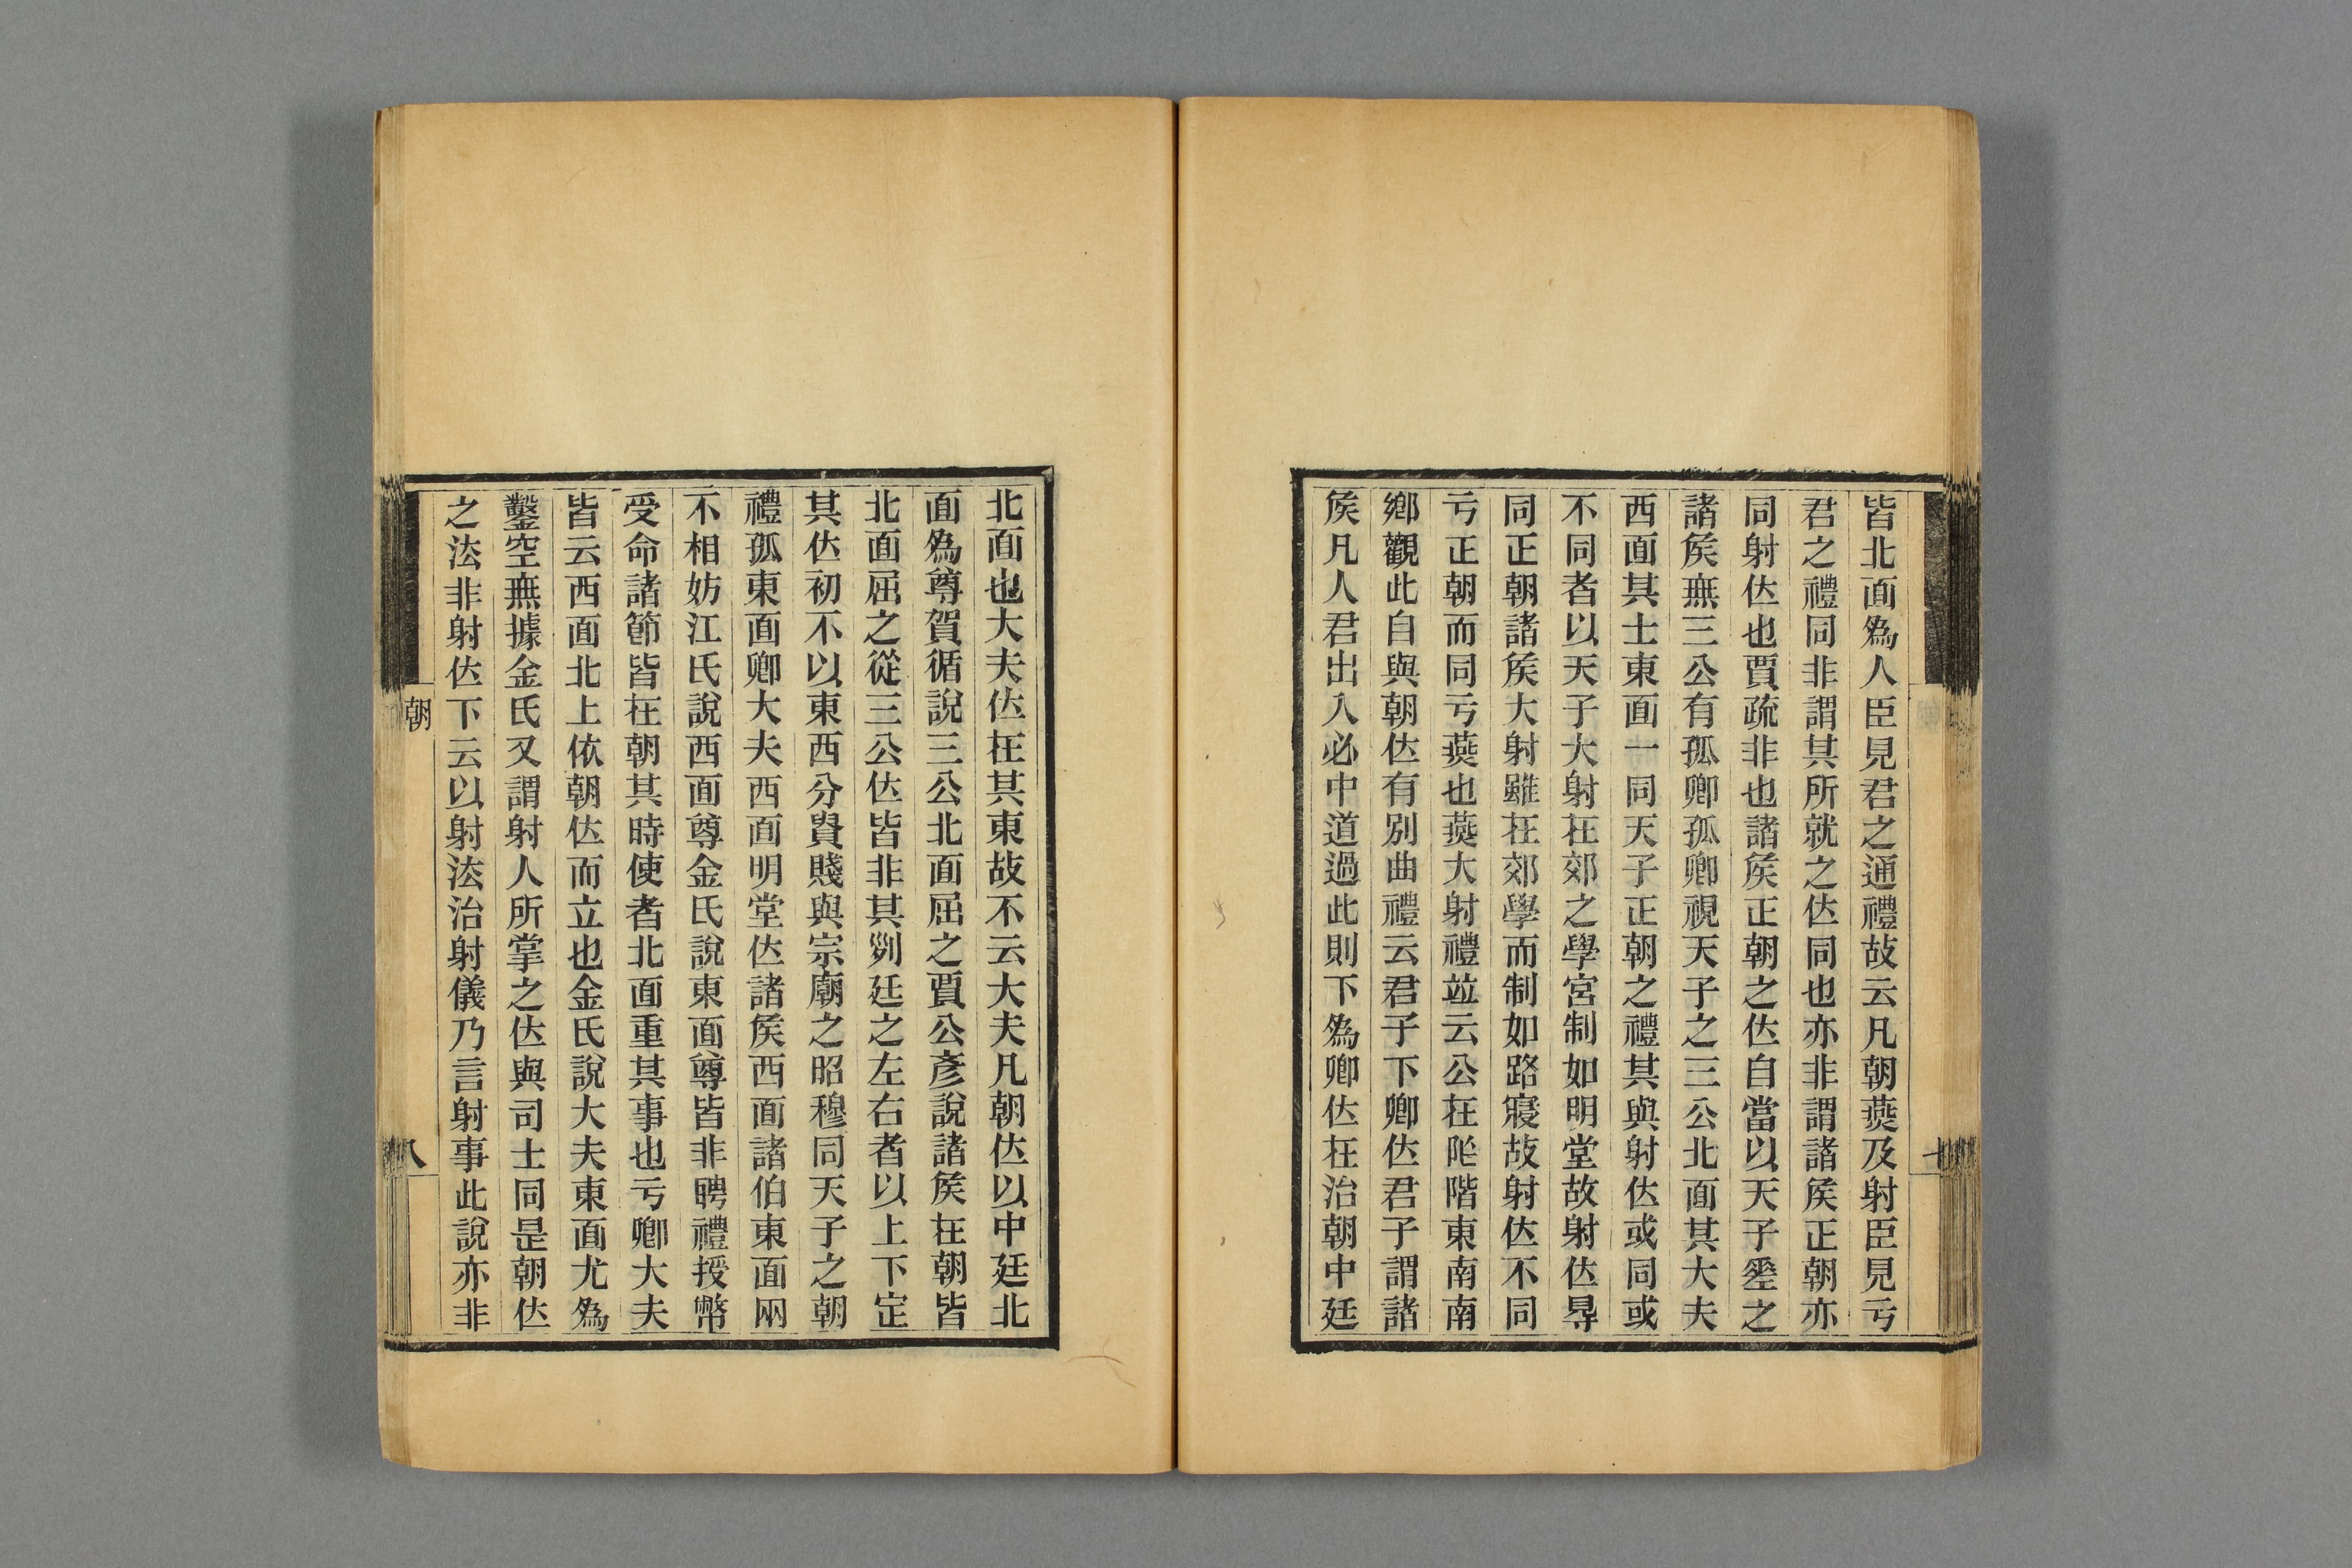 皆北面爲人臣見君之通禮故云凡朝燕及射臣見亏
君之禮同非謂其所就之位同也亦非謂諸矦正朝亦
同射位也賈疏非也諸矦正朝之位自當以天子㘸之
諸矦無三公有孤卿孤卿視天子之三公北面其大夫
西面其士東面一同天子正朝之禮其與射位或同或
不同者以天子大射在郊之學宮制如明堂故射位㝵
同正朝諸矦大射雖在郊學而制如路寢故射位不同
亏正朝而同亏燕也燕大射禮竝云公在阼階東南南
鄉觀此自與朝位有別曲禮云君子下卿位君子謂諸
矦凡人君出入必中道過此則下爲卿位在治朝中廷
北面也大夫位在其東故不云大夫凡朝位以中廷北
面爲尊賀循說三公北面屈之賈公彥說諸矦在朝皆
北面屈之從三公位皆非其𠛱廷之左右者以上下定
其位初不以東西分貴賤與宗廟之昭穆同天子之朝
禮孤東面卿大夫西面明堂位諸矦西面諸伯東面兩
不相妨江氏說西面尊金氏說東面尊皆非聘禮授幣
受命諸節皆在朝其時使者北面重其事也亏卿大夫
皆云西面北上依朝位而立也金氏說大夫東面尤爲
鑿空無據金氏又謂射人所掌之位與司士同是朝位
之法非射位下云以射法治射儀乃言射事此說亦非
朝
八